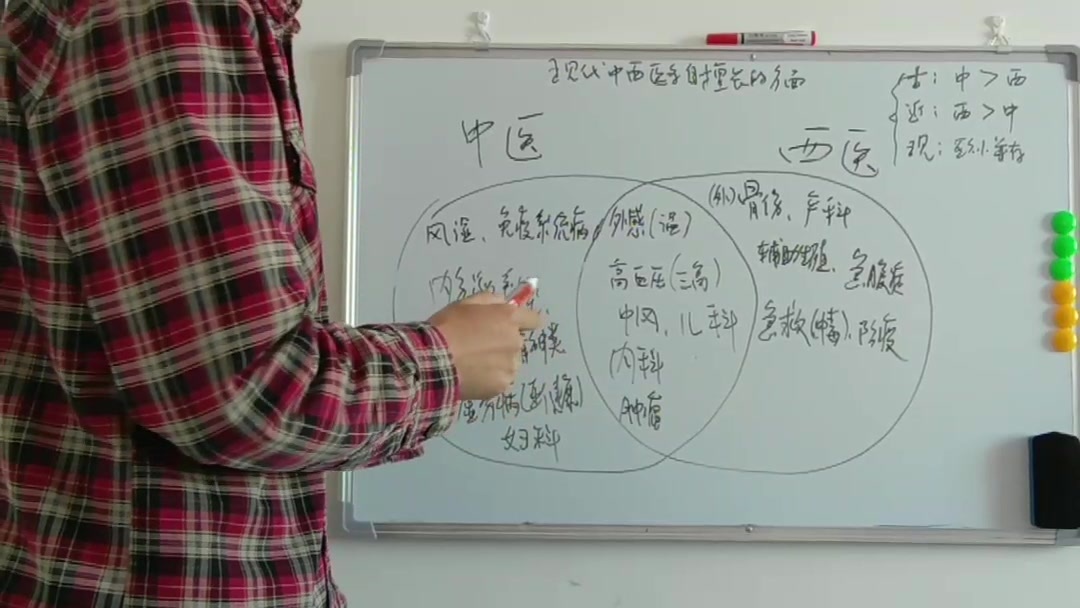 现代中西医各自擅长的方面
古：中＞西
近：西＞中
现：
中医
西医
风湿、免疫系统病
内分泌系统、
妇科
外感(温)
高血压(三高)
中风、儿科
内科
肿瘤
(外)骨伤、产科
辅助生殖、急腹症
急救(中毒)、防疫